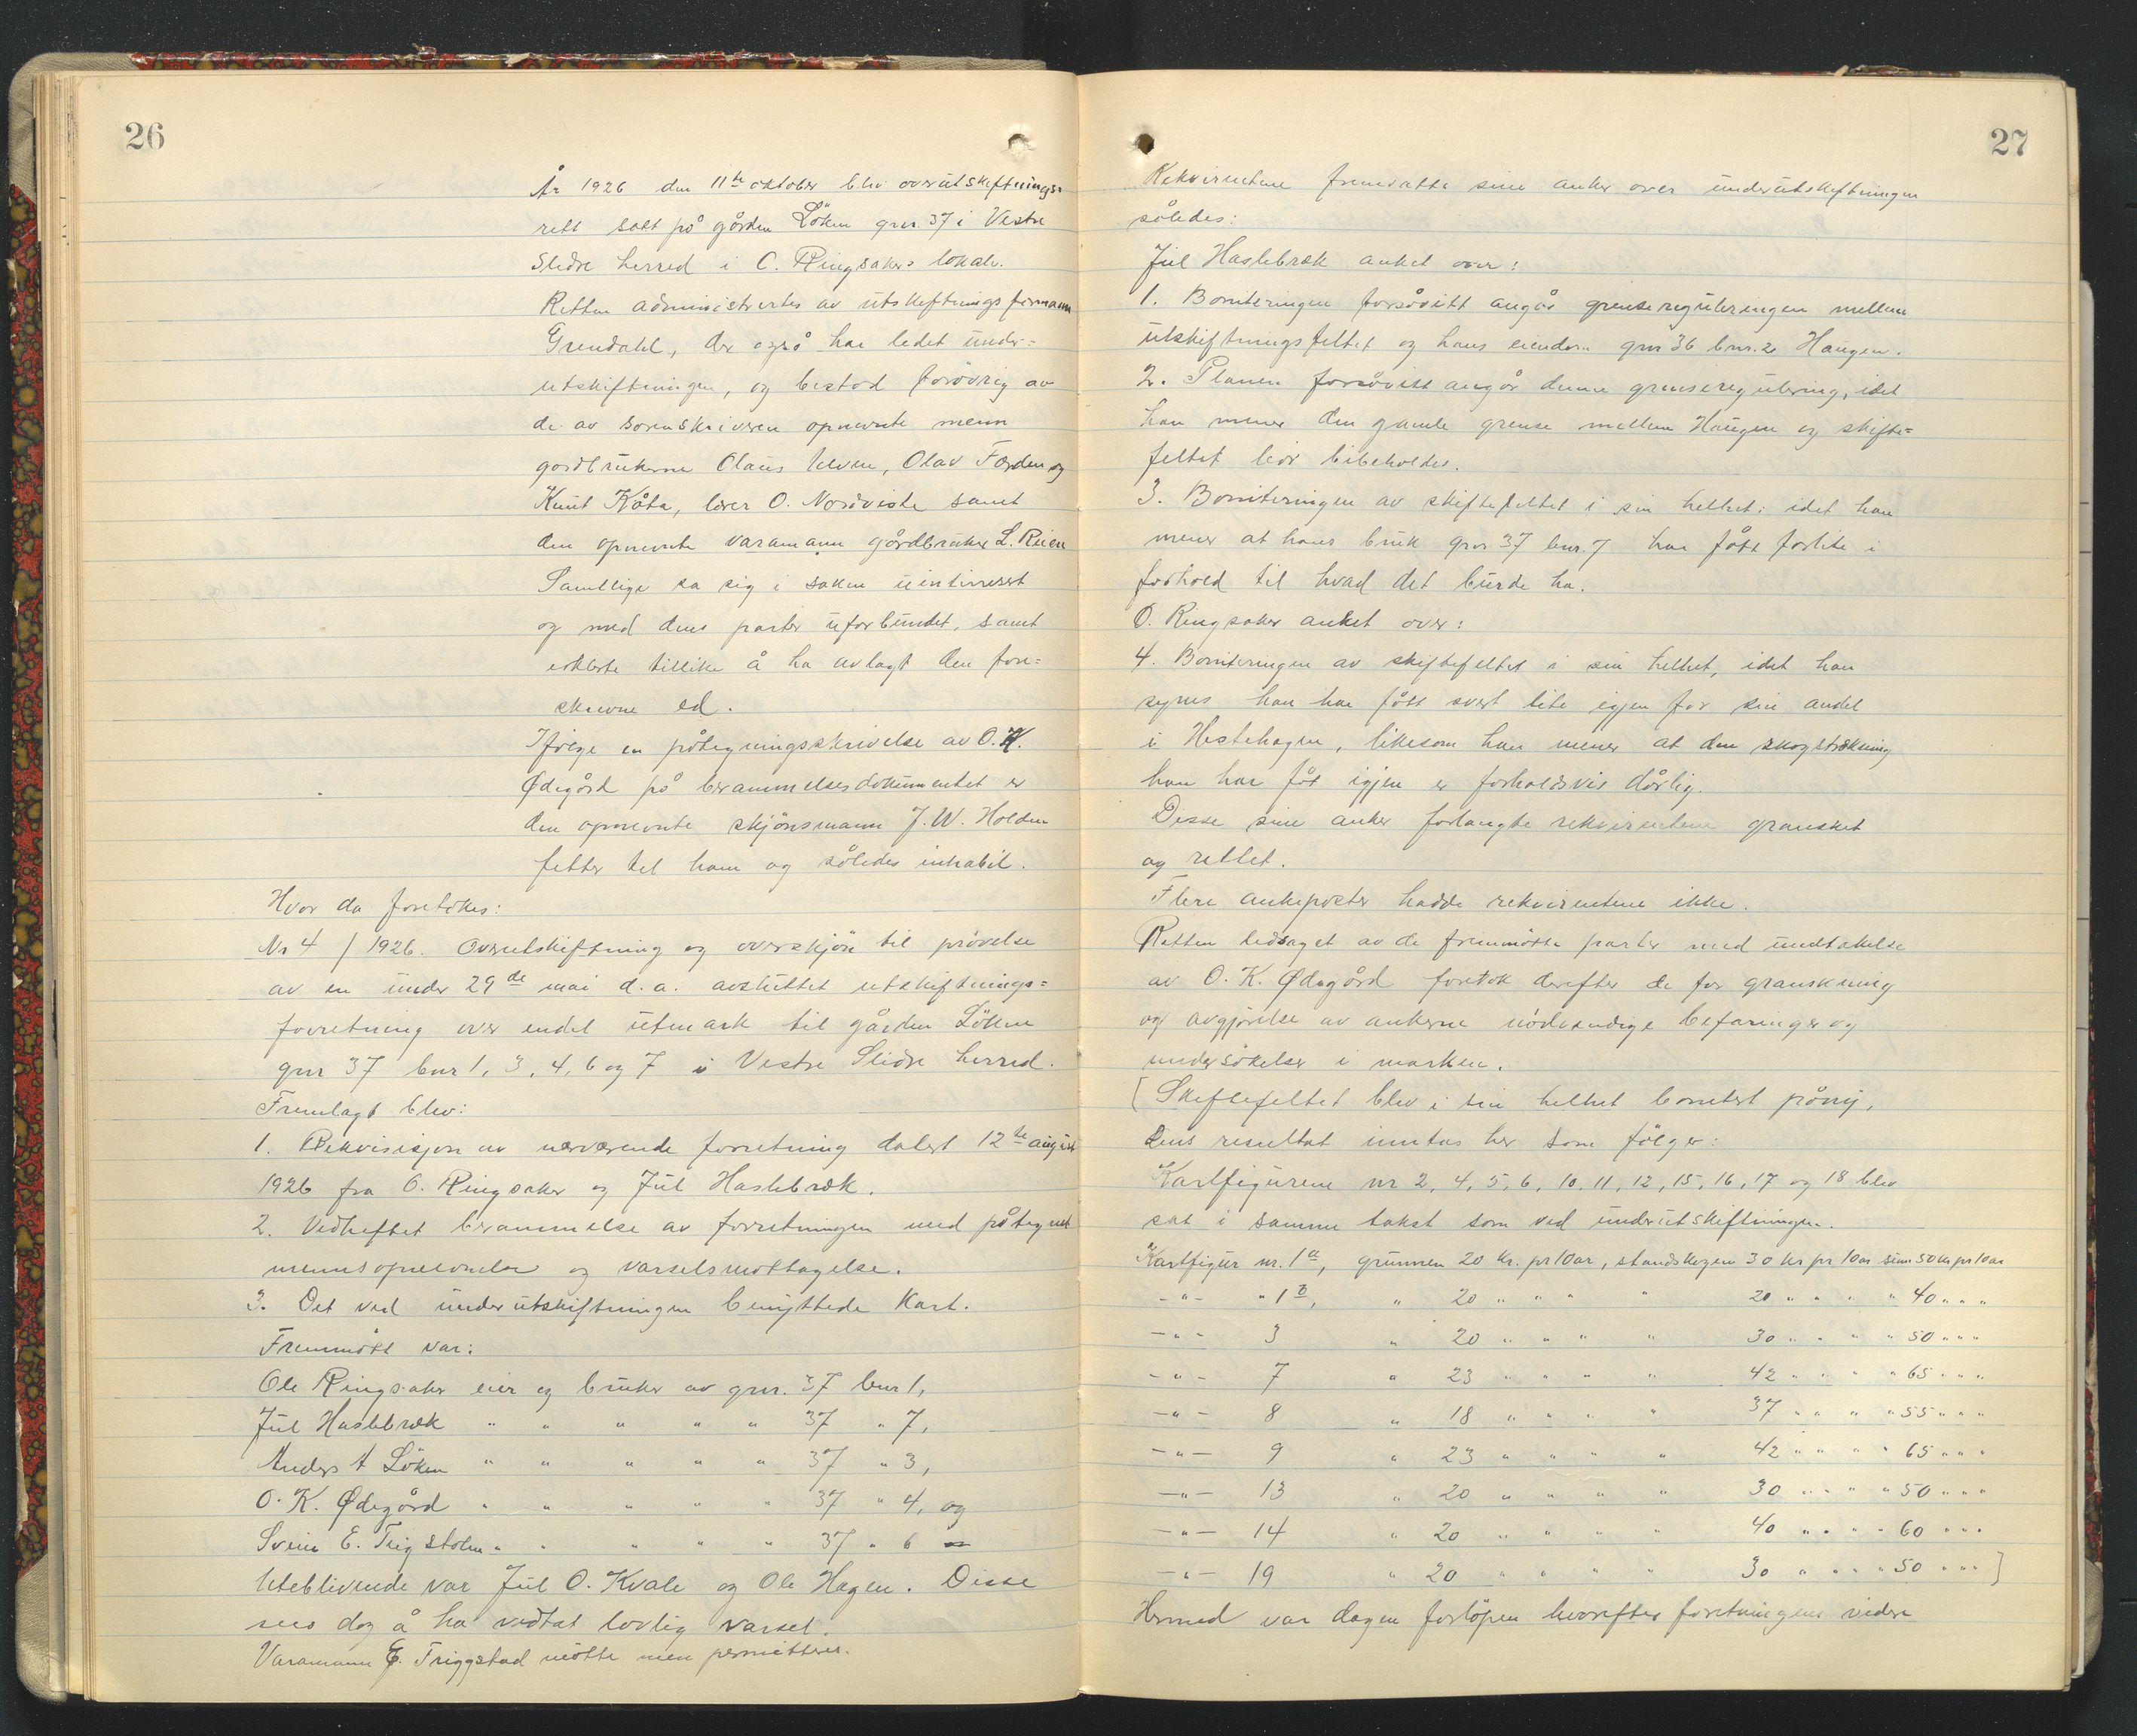 26
År 1926 den 11te oktober blev overutskiftnings=
rett satt på gården Löken gnr. 37 i Vestre
Slidre herred i O. Ringsakers lokale.
Retten administrertes av utskiftningsformann
Grendahl, der også har ledet under=
utskiftningen, og bestod forövrig av
de av sorenskriveren opnevnte menn
gårdbrukerne Olaus Elvine, Olav Førden og
Knut Kåta, lærer O. Nordviste samt
den opnevnte varamann gårdbruker L. Rein
Samtlige sa sig i saken uinteressert
og med dens parter uforbundet, samt
erklærte tillike å ha avlagt den fore=
skrevne ed.
Ifölge en påtegningsskrivelse av O. K.
Ødegård på berammelsesdokumentet er
den opnevnte skjönsmann J. W. Holden
fetter til ham og således inhabil.
Hvor da foretokes:
Nr 4 / 1926. Overutskiftning og overskjön til prövelse
av en under 29de mai d.a. avsluttet utskiftnings=
forretning over endel utmark til gården Löken
gnr 37 bnr 1, 3, 4, 6 og 7 i Vestre Slidre herred.
Fremlagt blev:
1. Rekvisisjon av nærværende forretning datert 12te august
1926 fra O. Ringsaker og Jul Haslebræk.
2. Vedheftet berammelse av forretningen med påtegnet
mennsopnevnelse og varselsmottagelse.
3. Det ved underutskiftningen benyttede kart.
Fremmött var:
Ole Ringsaker eier og bruker av gnr. 37 bnr 1,
Jul Haslebræk " " " " " 37 " 7,
Anders A Löken " " " " " 37 " 3,
O. K. Ødegård " " " " " 37 " 4, og
Svein E. Trigstolen " " " " " 37 " 6
Uteblivende var Jul O. Kvale og Ole Hagen. Disse
sees dog å ha vedtat lovlig varsel.
Varamann E. Triggstad mötte men permitteres.
27
Rekvirentene fremsatte sine anker over underutskiftningen
således:
Jul Haslebræk anket over:
1. Boniteringen forsåvitt angår grensereguleringen mellem
utskiftningsfeltet og hans eiendom gnr 36 bnr. 2 Haugen.
2. Planen forsåvitt angår denne grenseregulering, idet
han mener den gamle grense mellem Haugen og skifte=
feltet bör bibeholdes.
3. Boniteringen av skiftefeltet i sin helhet: idet han
mener at hans bruk gnr 37 bnr. 7 har fått forlite i
forhold til hvad det burde ha.
O. Ringsaker anket over:
4. Boniteringen av skiftefeltet i sin helhet, idet han
synes han har fått svert lite igjen for sin andel
i Hestehagen, likesom han mener at den skogstrekning
han har fåt igjen er forholdsvis dårlig.
Disse sine anker forlangte rekvirentene gransket
og rettet.
Flere ankeposter hadde rekvirentene ikke.
Retten ledsaget av de fremmötte parter med undtakelse
av O. K. Ødegård foretok derefter de for granskning
og avgjörelse av ankerne nödvendige befaringer og
undersökelser i marken.
[ Skiftefeltet blev i sin helhet bonitert påny,
dens resultat inntas her som fölger:
Kartfigurene nr 2, 4, 5, 6, 10, 11, 12, 15, 16, 17 og 18 blev
sat i samme takst som ved underutskiftningen.
Kartfigur nr. 1a, grunnen 20 kr. pr 10ar, standskogen 30 kr pr 10ar sum 50 kr pr 10ar
—"— " 1b, " 20 " " " " 20 " " " " 40 " " "
—"— 3 " 20 " " " " 30 " " " " 50 " " "
—"— 7 " 23 " " " " 42 " " " " 65 " " "
—"— 8 " 18 " " " " 37 " " " " 55 " " "
—"— 9 " 23 " " " " 42 " " " " 65 " " "
—"— 13 " 20 " " " " 30 " " " " 50 " " "
—"— 14 " 20 " " " " 40 " " " " 60 " " "
—"— 19 " 20 " " " " 30 " " " " 50 " " " ]
Hermed var dagen forlöpen hvorefter forretningens videre